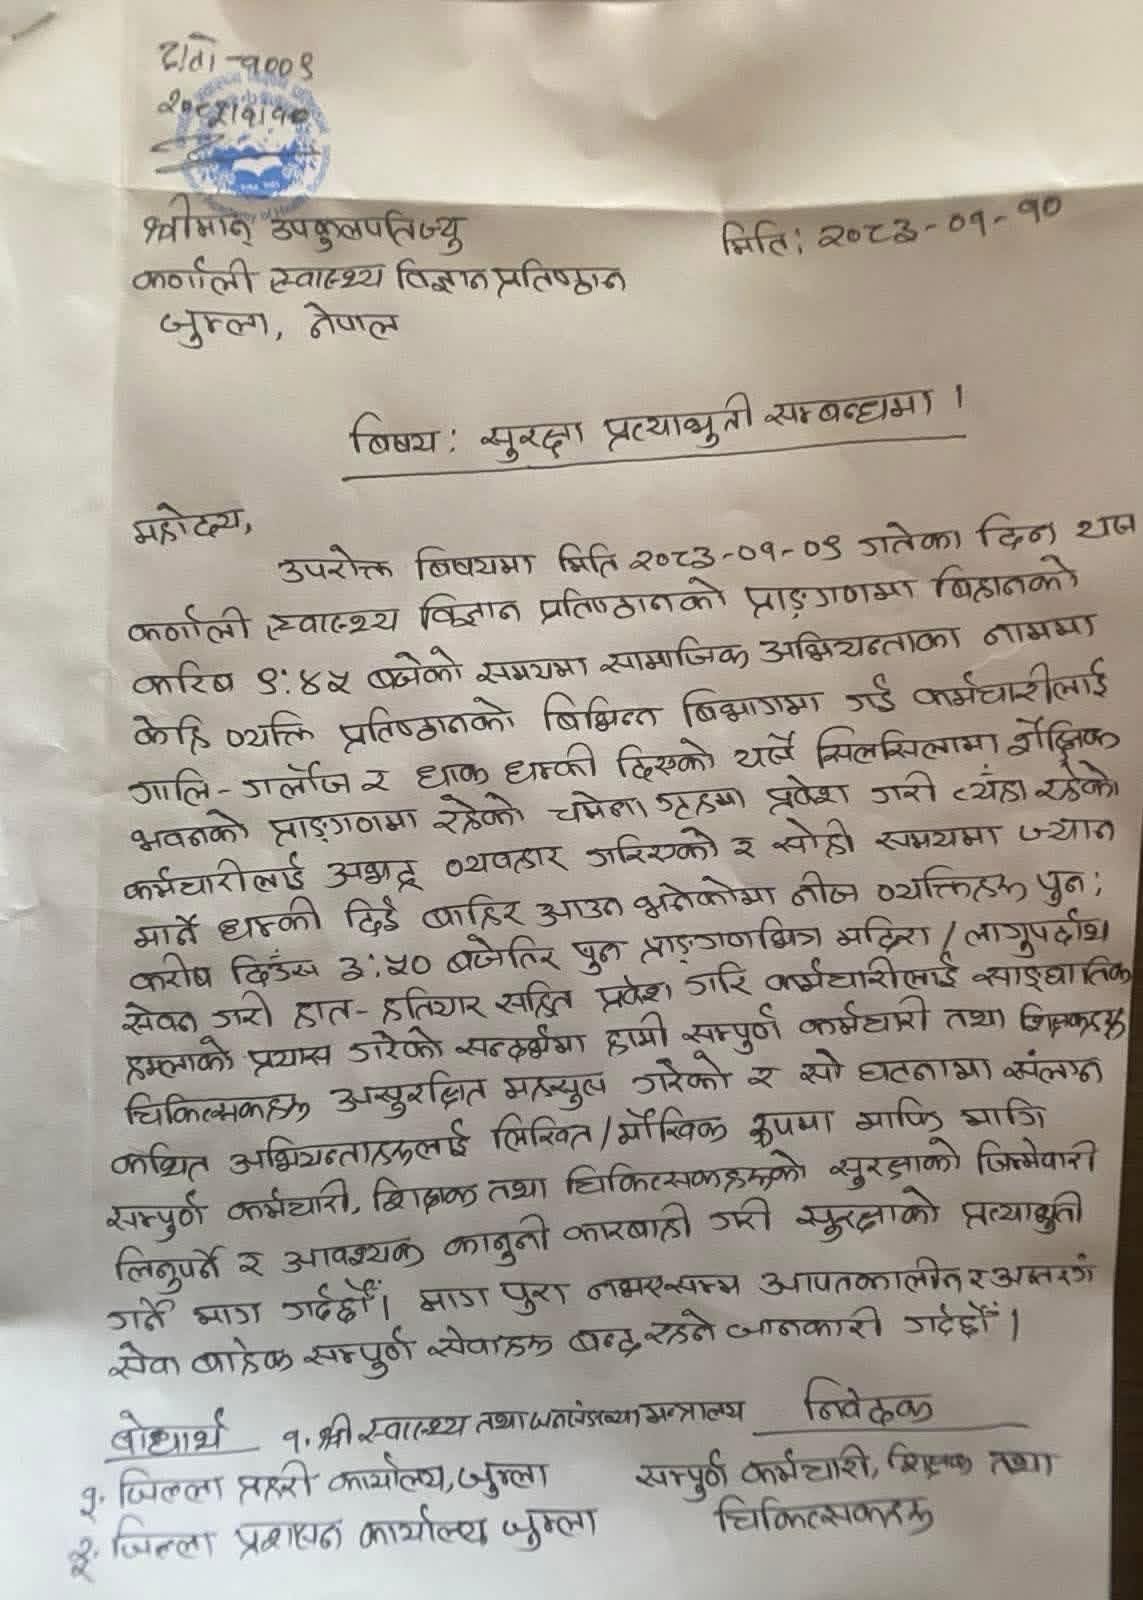 द/तो -१००९
२०८३/१/१०
श्रीमान् उपकुलपतिज्यु
मिति: २०८३-०१-१०
कर्णाली स्वास्थ्य विज्ञान प्रतिष्ठान
जुम्ला, नेपाल
बिषय: सुरक्षा प्रत्याभुती सम्बन्धमा ।
महोदय,
उपरोक्त बिषयमा मिति २०८३-०१-०९ गतेका दिन यस
कर्णाली स्वास्थ्य विज्ञान प्रतिष्ठानको प्राङ्गणमा बिहानको
करिब ९:४५ बजेको समयमा सामाजिक अभियन्ताका नाममा
केहि व्यक्ति प्रतिष्ठानको बिभिन्त बिभागमा गई कर्मचारीलाई
गालि-गलौज र धाक धम्की दिएको यसै सिलसिलामा शैक्षिक
भवनको प्राङ्गणमा रहेको चमेना गृहमा प्रवेश गरी त्यँहा रहेको
कर्मचारीलाई अभद्र व्यवहार गरिएको र सोही समयमा ज्यान
मार्ने धम्की दिई बाहिर आउन भनेकोमा नीज व्यक्तिहरू पुन:
करीब दिउँस ३:५० बजेतिर पुन प्राङ्गणभित्र मदिरा/लागुपर्दाथ
सेवन गरी हात-हतियार सहित प्रवेश गरि कर्मचारीलाई साङ्घातिक
हमलाको प्रयास गरेको सन्दर्भमा हामी सम्पुर्ण कर्मचारी तथा शिक्षकहरू
चिकित्सकहरू असुरक्षित महसुस गरेको र सो घटनामा संलग्न
कथित अभियन्ताहरूलाई लिखित/मौखिक रूपमा माफि मागि
सम्पुर्ण कर्मचारी, शिक्षक तथा चिकित्सकहरूको सुरक्षाको जिम्मेवारी
लिनुपर्ने र आवश्यक कानुनी कारबाही गरी सुरक्षाको प्रत्याभुती
गर्ने माग गर्दछौं। माग पुरा नभएसम्म आपतकालीन र अन्तरंग
सेवा बाहेक सम्पुर्ण सेवाहरू बन्द रहने जानकारी गर्दछौं।
बोधार्थ १. श्री स्वास्थ्य तथा जनसंख्या मन्त्रालय
निवेदक
२. जिल्ला प्रहरी कार्यालय, जुम्ला
सम्पुर्ण कर्मचारी, शिक्षक तथा
३. जिल्ला प्रशासन कार्यालय जुम्ला
चिकित्सकहरू